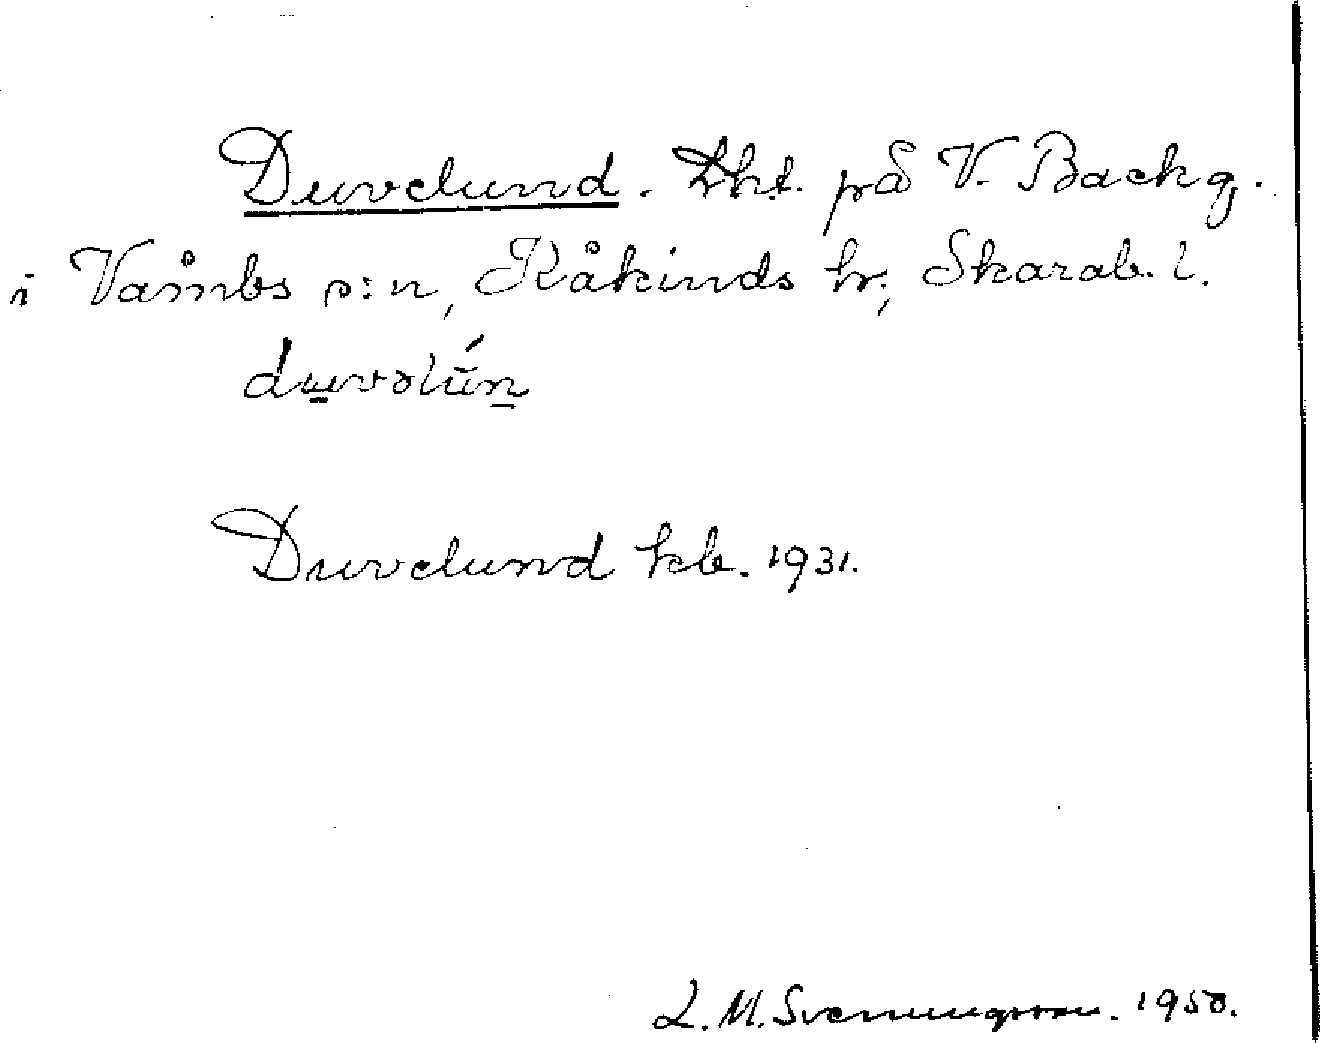 Duvelund. Lht. på V. Backg.
i Våmbs s:n, Kåkinds hr., Skarab. l.
duvəlún
Duvelund kb. 1931.
L. M. Svenungsson. 1950.